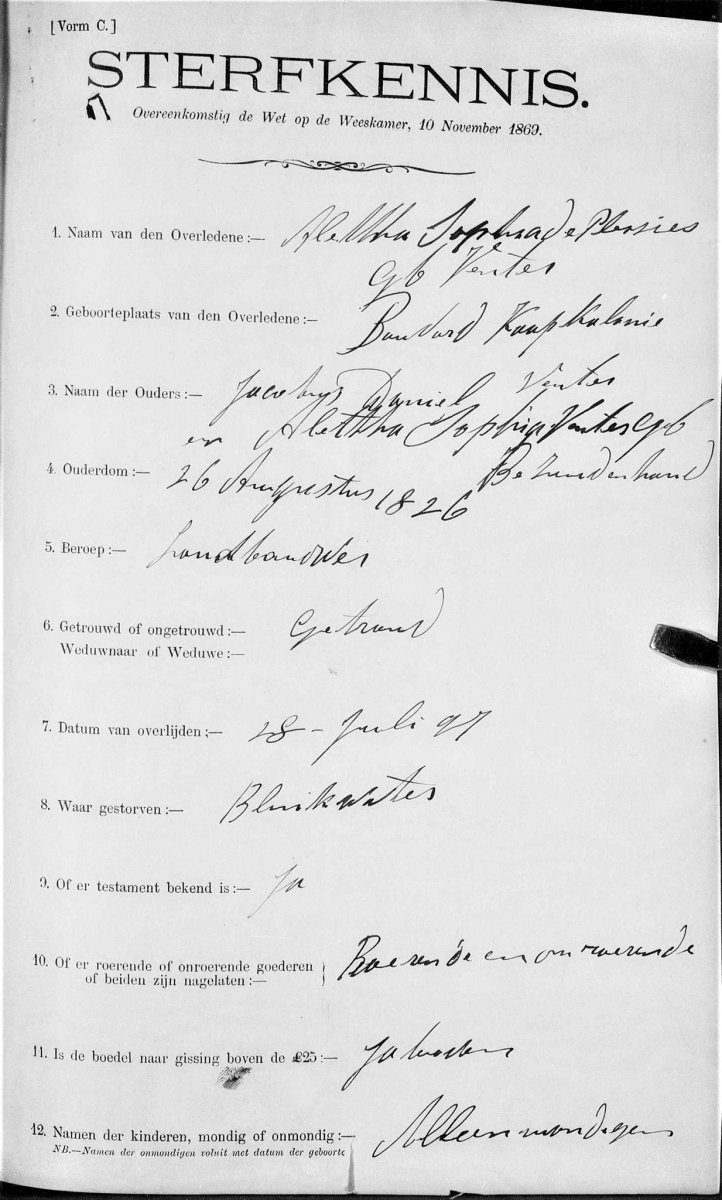 [Vorm C.]
STERFKENNIS.
Overeenkomstig de Wet op de Weeskamer, 10 November 1869.
1. Naam van den Overledene:— Alettha Sophia de Plessies
gb Venter
2. Geboorteplaats van den Overledene:— Kaap Kolonie
3. Naam der Ouders:— Jacobus Daniel Venter
en Alettha Sophia Venter gb
Bezuudenhoud
4. Ouderdom:— 26 Augustus 1826
5. Beroep:— Landbouwer
6. Getrouwd of ongetrouwd:— Getroud
Weduwnaar of Weduwe:—
7. Datum van overlijden:— 28 – Juli 97
8. Waar gestorven:— Blinkwater
9. Of er testament bekend is:— Ja
10. Of er roerende of onroerende goederen
of beiden zijn nagelaten:— Roerende en onroerende
11. Is de boedel naar gissing boven de £25:— Ja
12. Namen der kinderen, mondig of onmondig:— Alleen mondigen
NB.—Namen der onmondigen voluit met datum der geboorte